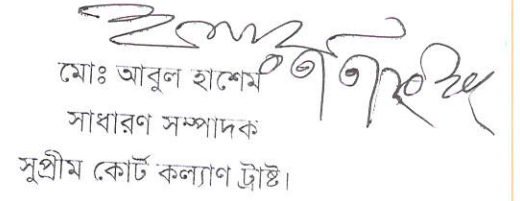 মোঃ আবুল হাশেম
সাধারণ সম্পাদক
সুপ্রীম কোর্ট কল্যাণ ট্রাষ্ট।